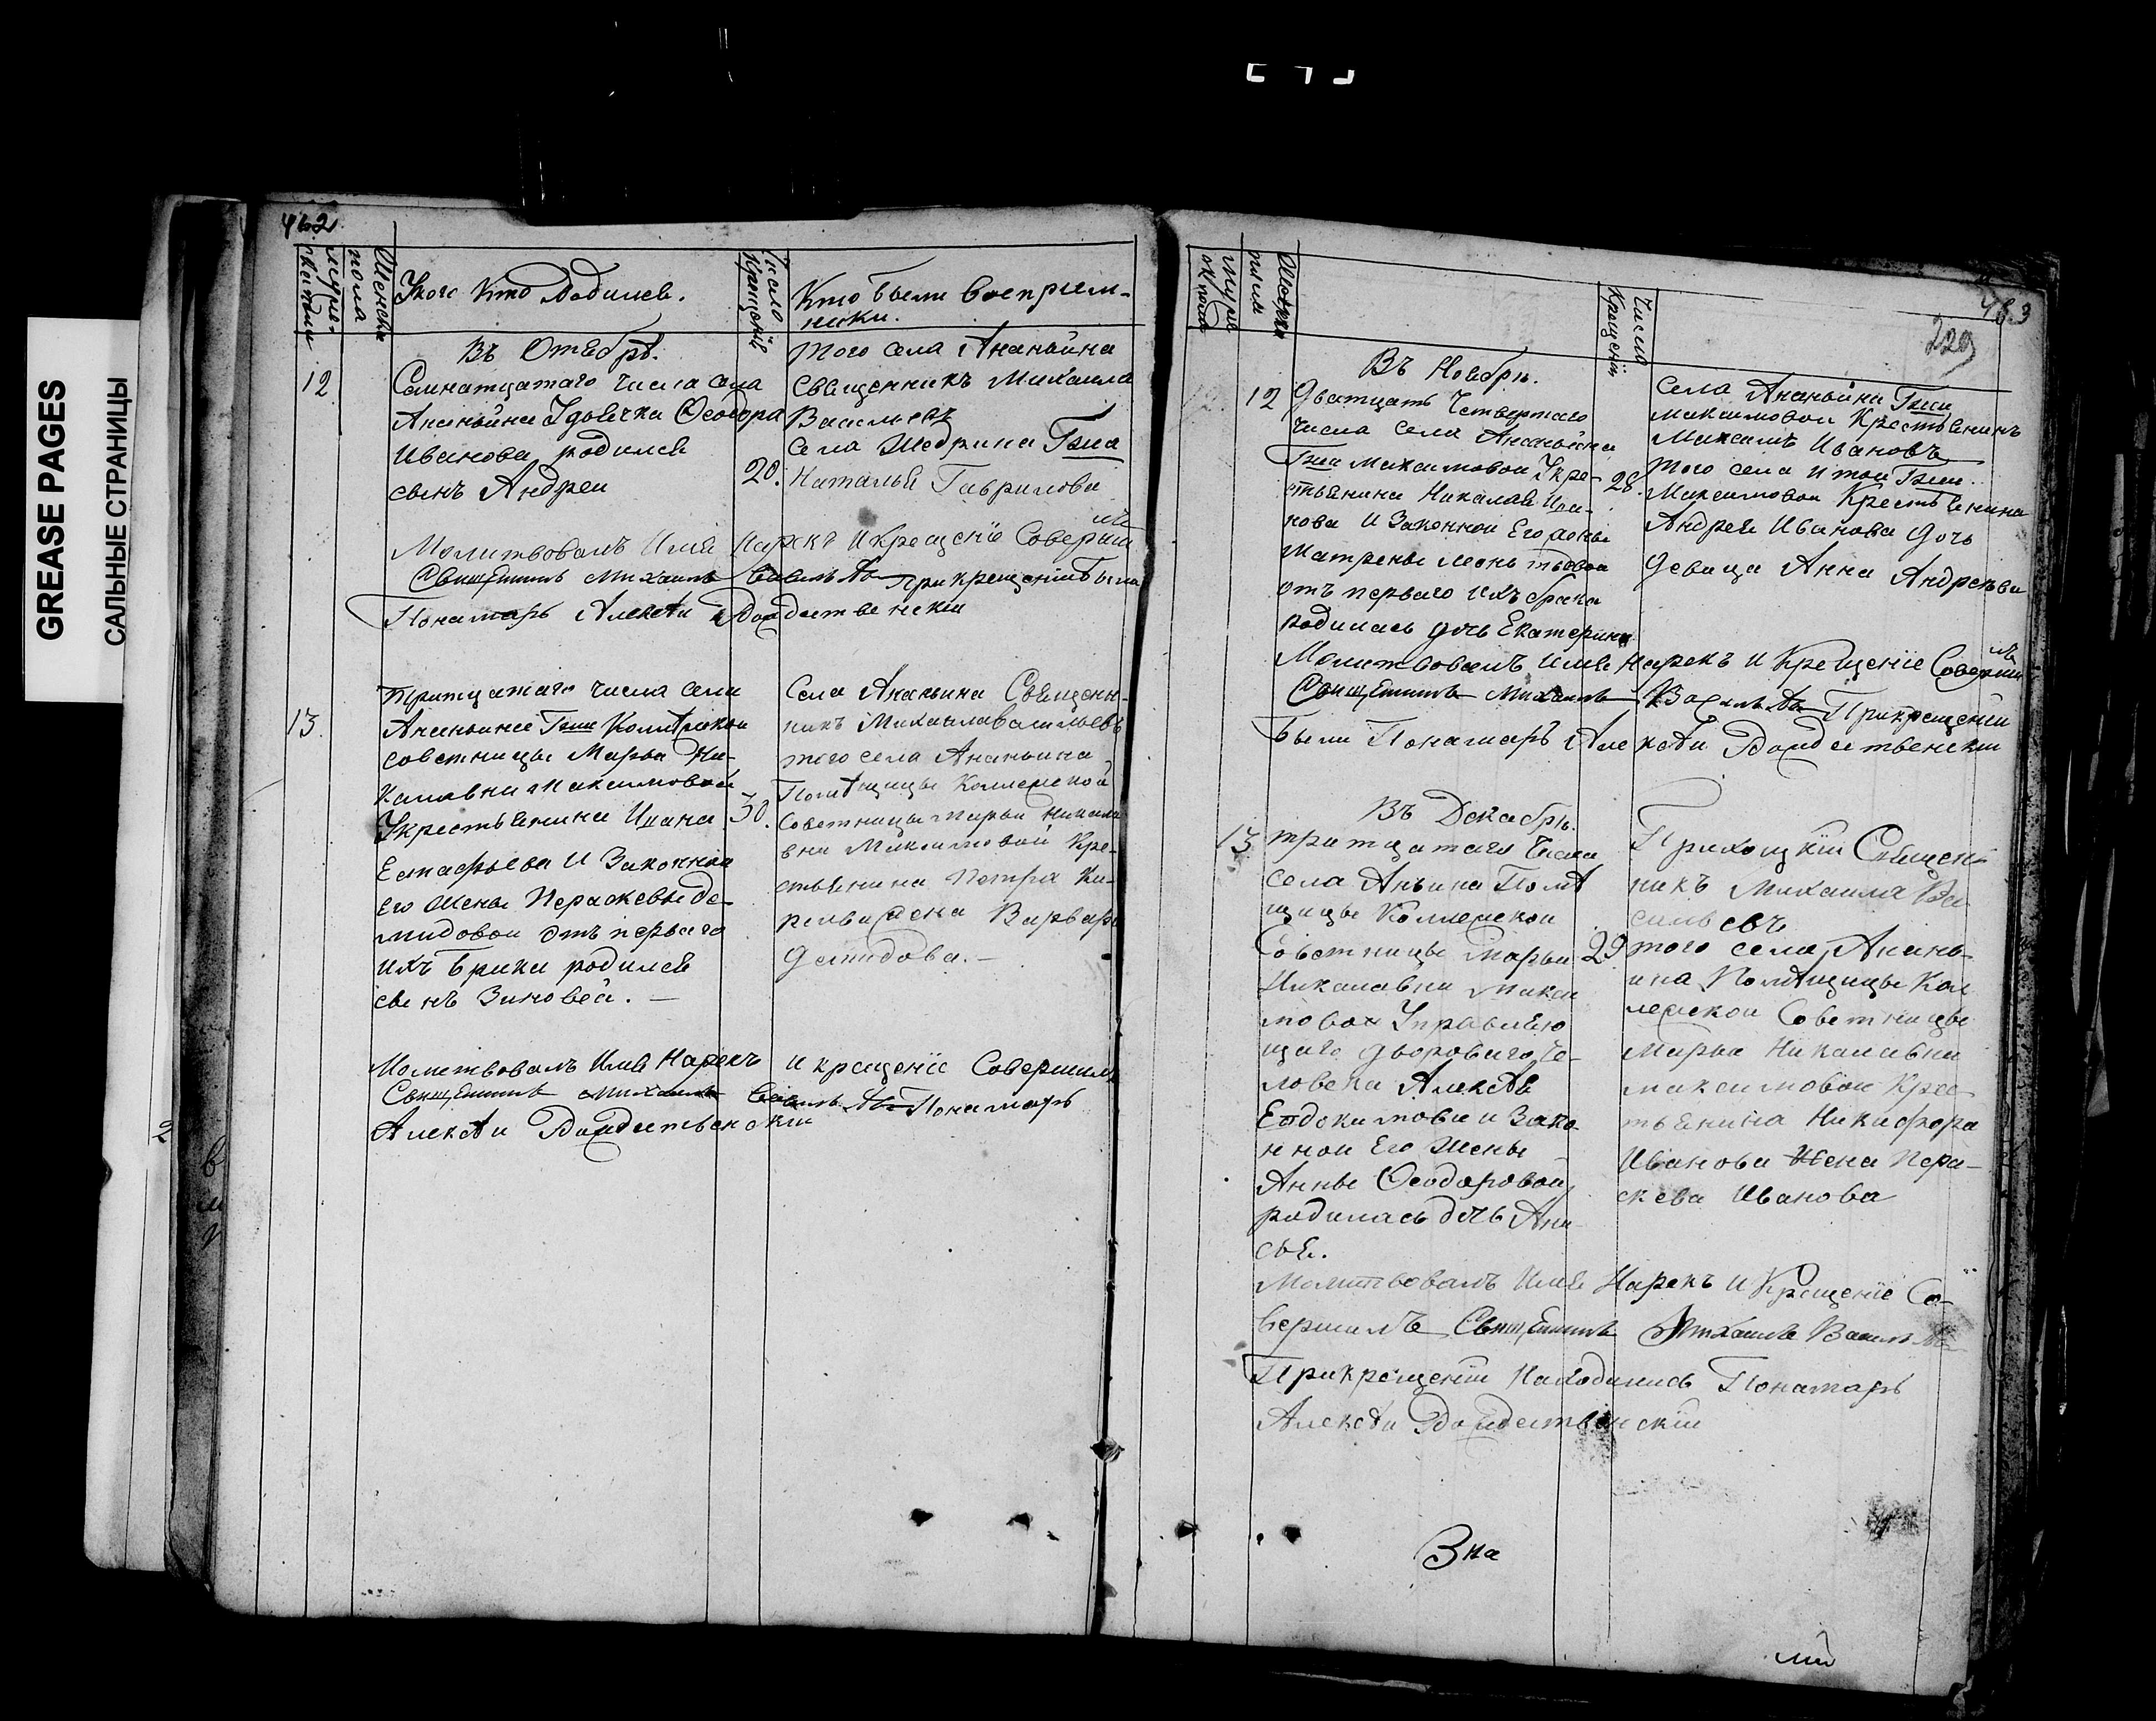 GREASE PAGES
САЛЬНЫЕ СТРАНИЦЫ
462
мужеска
пола
Женска
У кого кто родилсѧ.
Число
крещенїѧ
Кто были восприем-
ники.
Въ Октѧбрѣ.
12
Семнатцатаго числа села
Ананьина У дьѧчка Ѳеодора
Иванова родилсѧ
сынъ Андреи
20.
того села Ананьина
священникъ Михаила
Васильевъ
Села Шедрина Гжа
Наталья Гаврилова
Молитвовалъ Имя Нарекъ И крещенїе Совершилъ
Священникъ Михаилъ Васильевъ При крещенїи были
Понамарь Алексѣи Рождественскїи
13.
тритцатаго числа села
Ананьина Гжи Колежскои
советницы Марьи Ни-
калавни Максимовой
У крестьѧнина Ивана
Естафьева И Законной
Его Жены Парасковьи де-
мидовои отъ перваго
ихъ брака родилсѧ
сынъ Зиновей. —
30.
Села Ананьина Священ-
никъ Михаила Васильевъ
того села Ананьина
Помѣщицы Колежской
Советницы Марьи Никала-
вны Максимовой Кре-
стьѧнина Петра Ки-
рилова жена Варвара
демидова. —
Молитвовалъ Имѧ Нарекъ И крещенїе Совершилъ
Священникъ Михаилъ Васильевъ Понамарь
Алексѣи Рождественскїи
463
229
мужеска
пола
Женска
Число
Крещенїѧ
Въ Ноѧбрѣ.
12
Дватцать Четвертаго
числа села Ананьина
Гжи Максимовой У кре-
стьѧнина Никалаѧ Ива-
нова И Законной Его жены
Матрены леонтьевои
отъ перваго ихъ брака
родилась дочь Екатерина
28.
Села Ананьина Гжи
Максимовои Крестьѧнинъ
Михаилъ Ивановъ
того села И тои Гжи
Максимовои Крестьѧнина
Андреѧ Иванова дочь
девица Анна Андреѣва
Молитвовалъ имѧ Нарекъ И Крещенїе Совершилъ
Священникъ Михаилъ Васильевъ При крещенїи
были Понамарь Алексѣи Рождественскїи
Въ Декабрѣ.
13
тритцатаго числа
села Анъина Помѣ
щицы Колежской
Советницы Марьи
Никалавни Макси
мовои Управляю
щаго двороваго Че-
ловека Алексѣѧ
Евдокимова и Зако-
нной Его Жены
Анны Ѳеодоровой
родилась дочь Ани
сьѧ.
29
Приходскїи Священ-
никъ Михаила Ва
сильевъ
того села Анань-
ина Помѣщицы Кол
лежской Советницы
Марьи Никалавны
максимовои Крес
тьѧнина Никифора
Иванова Жена Пара-
скева Иванова
Молитвовалъ Имѧ Нарекъ И Крещенїе Со-
вершилъ Священникъ Михаилъ Васильевъ
При крещенїи Находились Понамарь
Алексѣи Рождественскїи
Зна